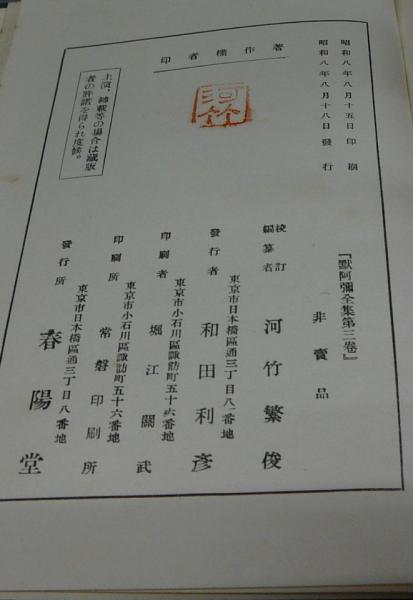 昭和八年八月十五日印刷
昭和八年八月十八日發行
著作權者印
河竹
上演、轉載等の場合は藏版
者の許諾を得られ度候。
『默阿彌全集第三卷』
(非賣品)
校訂
編纂者 河竹繁俊
東京市日本橋區通三丁目八番地
發行者 和田利彥
東京市小石川區諏訪町五十六番地
印刷者 堀江關武
東京市小石川區諏訪町五十六番地
印刷所 常磐印刷所
東京市日本橋區通三丁目八番地
發行所 春陽堂